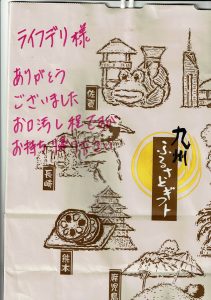 ライフデリ様。
ありがとう
ございました
お口汚し程ですが
お持ち帰り下さい
佐賀
九州
ふるさとギフト
長崎
熊本
鹿児島